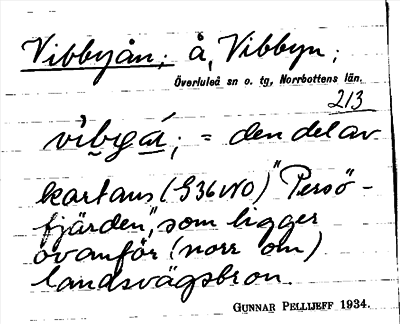 Vibbyån; å, Vibbyn;
Överluleå sn o. tg, Norrbottens län.
213
vìbγá; = den del av
kartans (G36NO) "Persö-
fjärden", som ligger
ovanför (norr om)
landsvägsbron.
GUNNAR PELLIJEFF 1934.